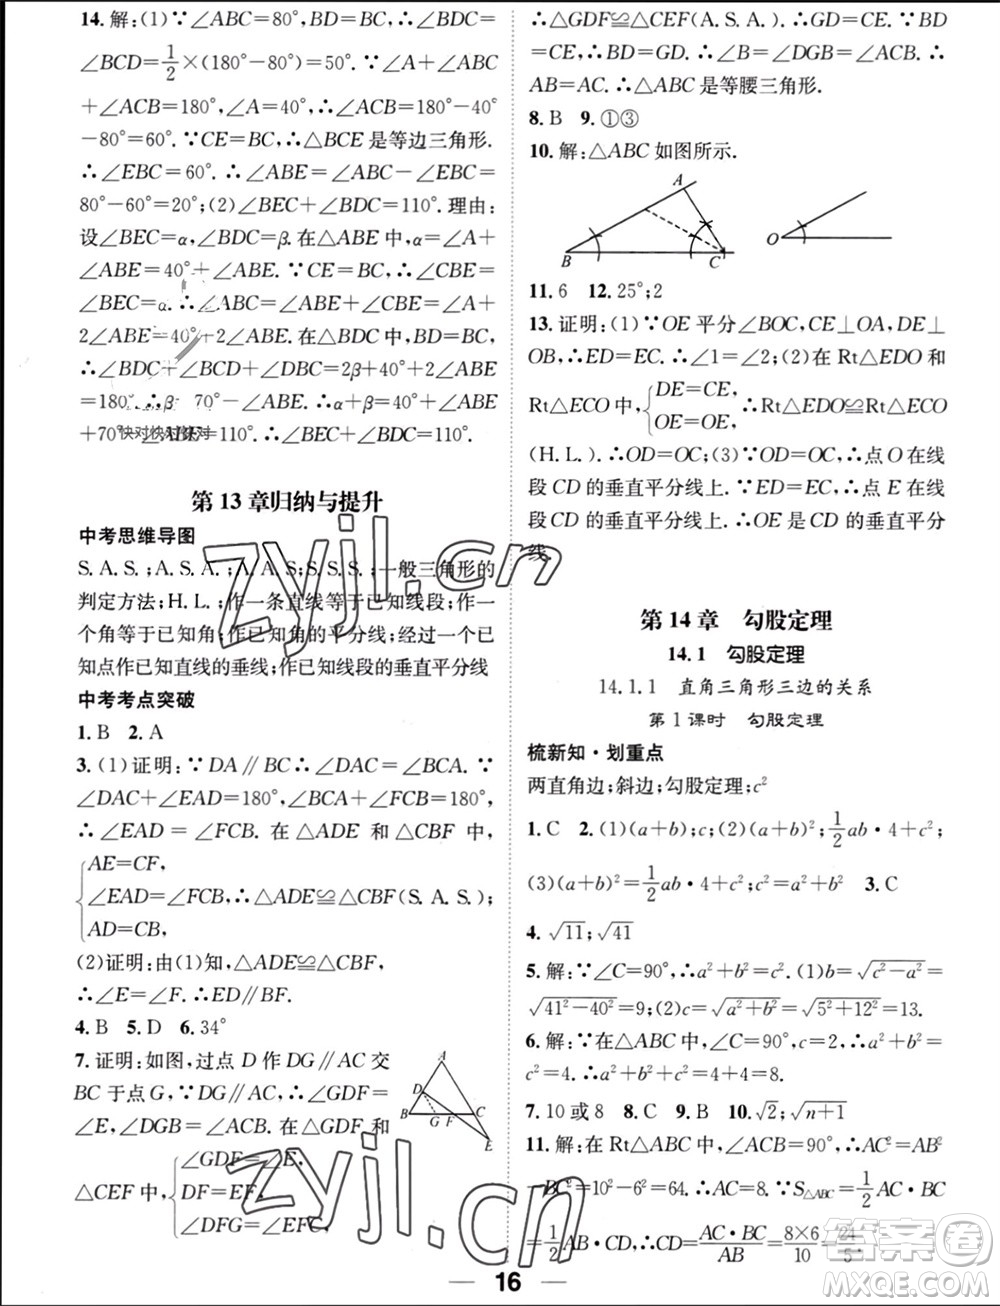 14. 解:(1)∵∠ABC=80°,BD=BC,∴∠BDC=
∠BCD=1/2×(180°-80°)=50°. ∵∠A+∠ABC
+∠ACB=180°,∠A=40°,∴∠ACB=180°-40°
-80°=60°. ∵CE=BC,∴△BCE是等边三角形.
∴∠EBC=60°. ∴∠ABE=∠ABC-∠EBC=
80°-60°=20°;(2)∠BEC+∠BDC=110°.理由:
设∠BEC=α,∠BDC=β.在△ABE中,α=∠A+
∠ABE=40°+∠ABE. ∵CE=BC,∴∠CBE=
∠BEC=α.∴∠ABC=∠ABE+∠CBE=∠A+
2∠ABE=40°+2∠ABE.在△BDC中,BD=BC,
∴∠BDC+∠BCD+∠DBC=2β+40°+2∠ABE
=180°.∴β=70°-∠ABE.∴α+β=40°+∠ABE
+70°-∠ABE=110°.∴∠BEC+∠BDC=110°.
快对快对快对
第13章归纳与提升
中考思维导图
S.A.S.;A.S.A.;A.A.S.;S.S.S.;一般三角形的
判定方法;H.L.;作一条直线等于已知线段;作一
个角等于已知角;作已知角的平分线;经过一个已
知点作已知直线的垂线;作已知线段的垂直平分线
中考考点突破
1. B 2. A
3. (1)证明:∵DA∥BC∴∠DAC=∠BCA. ∵
∠DAC+∠EAD=180°,∠BCA+∠FCB=180°,
∴∠EAD=∠FCB.在△ADE和△CBF中,
AE=CF,
∠EAD=∠FCB,∴△ADE≌△CBF(S.A.S.);
AD=CB,
(2)证明:由(1)知,△ADE≌△CBF.
∴∠E=∠F.∴ED∥BF.
4. B 5. D 6. 34°
7. 证明:如图,过点D作DG∥AC交
BC于点G,∵DG∥AC,∴∠GDF=
∠E,∠DGB=∠ACB.在△GDF和
△CEF中,
∠GDF=∠E,
DF=EF,
∠DFG=∠EFC,
A
D
B G F C
E
∴△GDF≌△CEF(A.S.A.).∴GD=CE.∵BD
=CE,∴BD=GD.∴∠B=∠DGB=∠ACB.∴
AB=AC.∴△ABC是等腰三角形.
8. B 9. ①③
10. 解:△ABC如图所示.
A
B C O
11. 6 12. 25°;2
13. 证明:(1)∵OE平分∠BOC,CE⊥OA,DE⊥
OB,∴ED=EC.∴∠1=∠2;(2)在Rt△EDO和
Rt△ECO中,
DE=CE,
OE=OE,
∴Rt△EDO≌Rt△ECO
(H.L.).∴OD=OC;(3)∵OD=OC,∴点O在线
段CD的垂直平分线上.∵ED=EC,∴点E在线
段CD的垂直平分线上.∴OE是CD的垂直平分
线.
第14章 勾股定理
14.1 勾股定理
14.1.1 直角三角形三边的关系
第1课时 勾股定理
梳新知·划重点
两直角边;斜边;勾股定理;c²
1. C 2. (1)(a+b);c;(2)(a+b)²;1/2ab·4+c²;
(3)(a+b)²=1/2ab·4+c²;a²+b²=c² 3. C
4. √11;√41
5. 解:∵∠C=90°,∴a²+b²=c².(1)b=√(c²-a²)=
√(41²-40²)=9;(2)c=√(a²+b²)=√(5²+12²)=13.
6. 解:∵在△ABC中,∠C=90°,∴a²+b²=c².∴a²+
b²+c²=4+4=8.
7. 10或8 8. C 9. C 10. √2;√(n+1)
11. 解:在Rt△ABC中,∠ACB=90°,∴AC²=AB²
-BC²=10²-6²=64.∴AC=8.∵S△ABC=1/2AC·BC
=1/2AB·CD,∴CD=AC·BC/AB=8×6/10=24/5.
16
zyjl.cn
zyjl.cn
答案圈
MXQE.COM